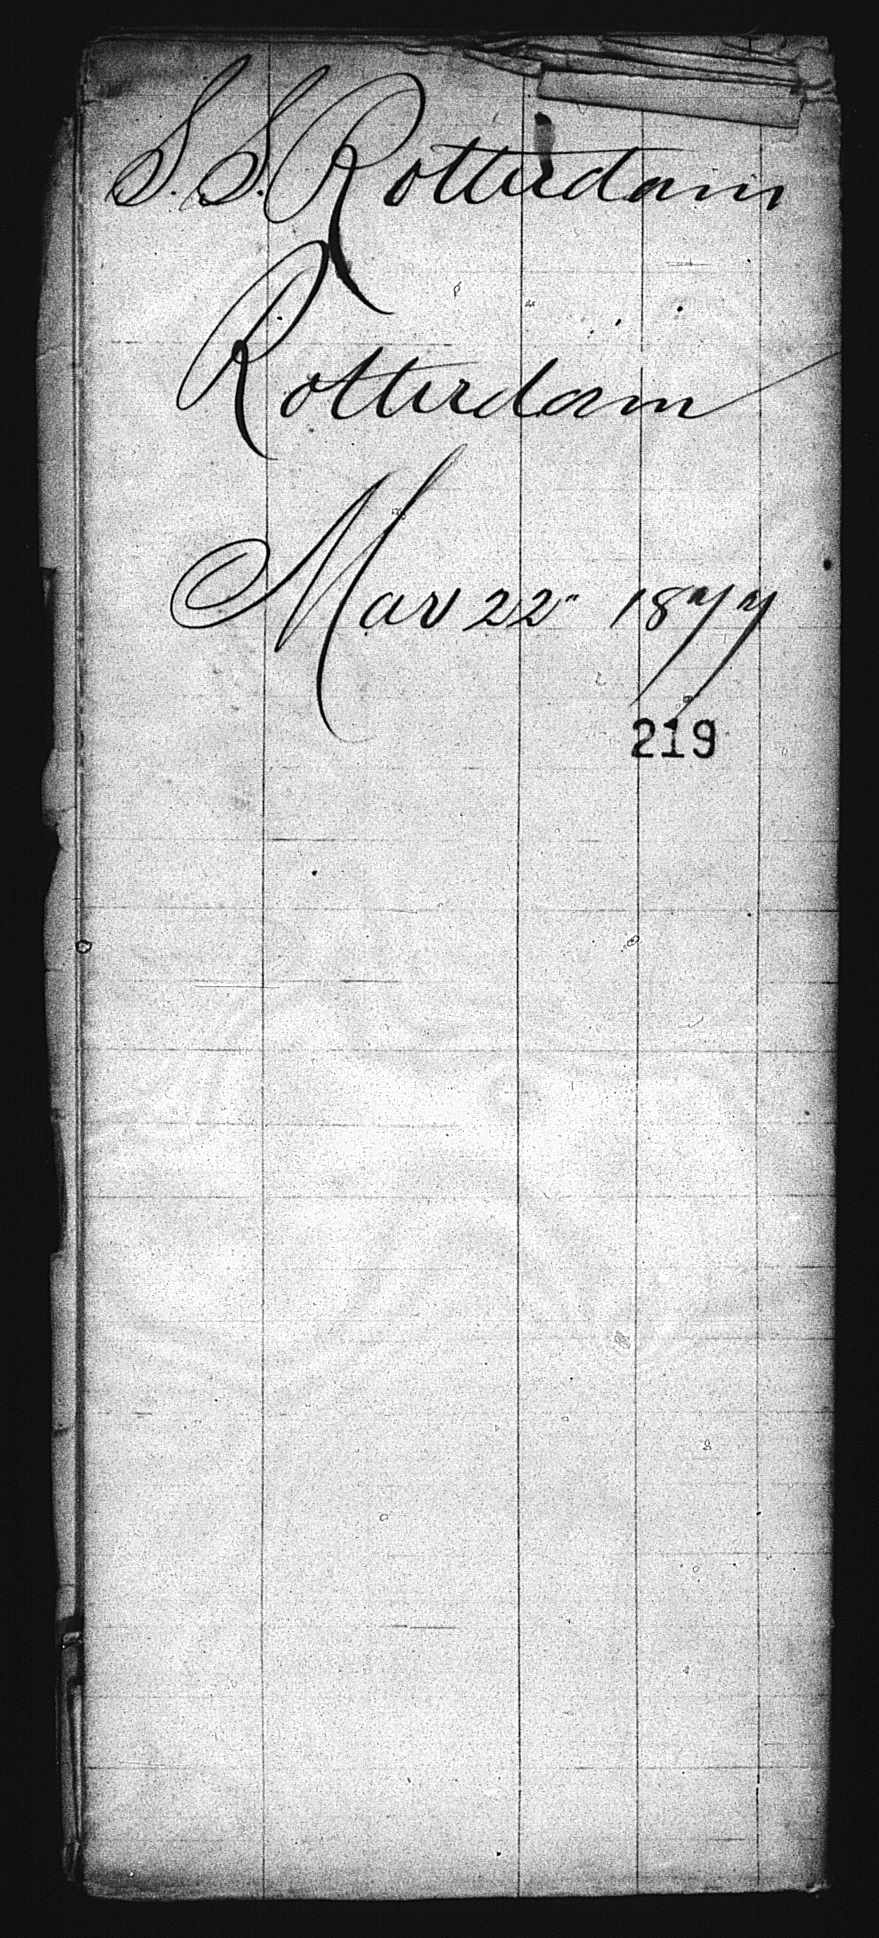 S. S. Rotterdam
Rotterdam
Mar 22" 1877
219